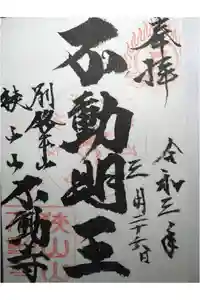 奉拝
令和三年
三月二十六日
不動明王
別格本山
狭山山
不動寺